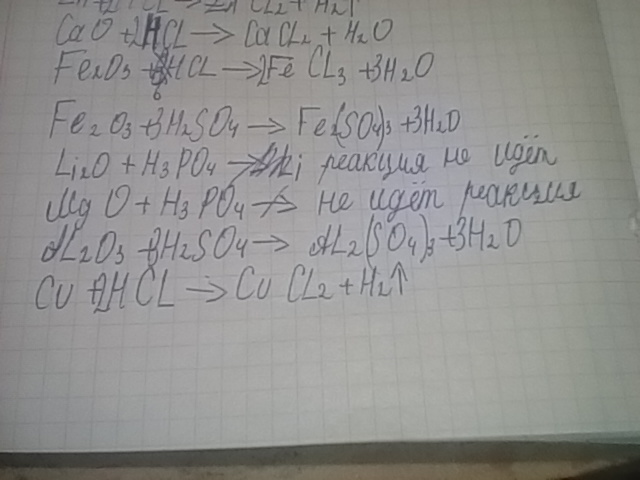 CaO + 2HCL → CaCL2 + H2O
Fe2O3 + 6HCL → 2FeCL3 + 3H2O
Fe2O3 + 3H2SO4 → Fe2(SO4)3 + 3H2O
Li2O + H3PO4 → реакция не идёт
MgO + H3PO4 → не идёт реакция
AL2O3 + 3H2SO4 → AL2(SO4)3 + 3H2O
Cu + 2HCL → CuCL2 + H2↑